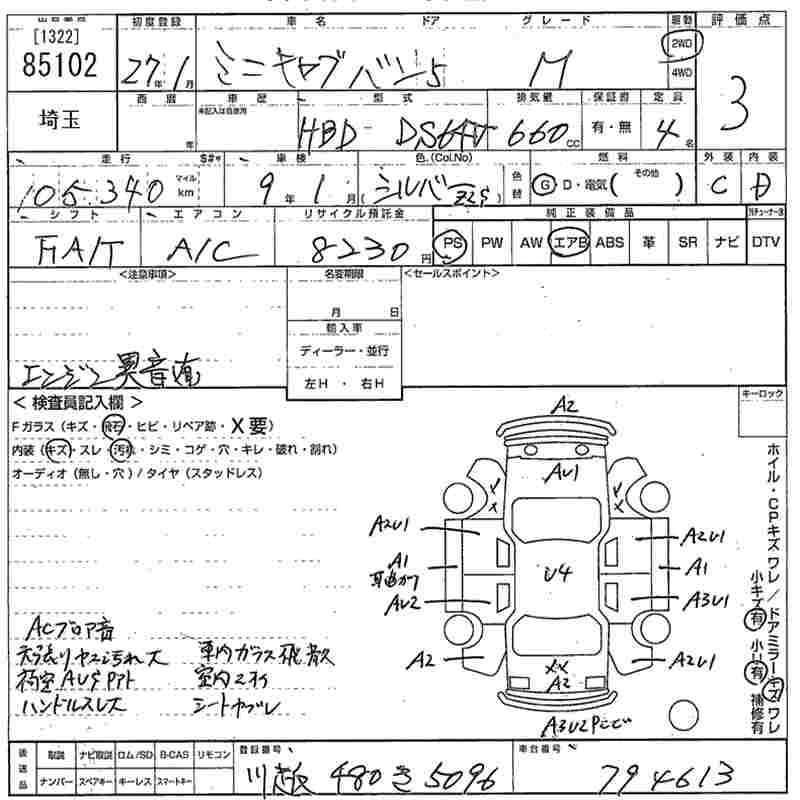 出品番号
[1322]
85102
埼玉
初度登録
27年1月
車名
ドア
グレード
ミニキャブバン 5
M
駆動
2WD
4WD
評価点
3
西暦
年
車歴
未記入は自家用
型式
HBD-DS64V
排気量
660cc
保証書
有・無
定員
4名
走行
105,340
マイル
km
S#
車検
9年1月
色 (Col.No)
シルバー Z2S
色替
燃料
G D・電気( その他 )
外装
C
内装
D
シフト
FAT
エアコン
A/C
リサイクル預託金
8230円
純正装備品
PS PW AW エアB ABS 革 SR ナビ
DTV
<注意事項>
エンジン異音有
名変期限
月 日
輸入車
ディーラー・並行
左H・右H
<セールスポイント>
キーロック
<検査員記入欄>
Fガラス(キズ・飛石・ヒビ・リペア跡・X要)
内装(キズ・スレ・汚れ・シミ・コゲ・穴・キレ・破れ・割れ)
オーディオ(無し・穴)/タイヤ(スタッドレス)
A2
AU1
A2U1
A2U1
A1
A1
U4
AU2
A3U1
A2
XX
A2
A2U1
ACブロア音
天張りヤニ汚れ大
車内ガラス飛散
荷室AUサビ
ハンドルスレ大
シートヤブレ
ホイル・CPキズ ワレ / ドアミラーキズ ワレ
小キズ有 小U有 補修有
後送品
取説 ナビ取説 ロム/SD B-CAS リモコン
ナンバー スペアキー キーレス スマートキー
登録番号
川越 480 き 5096
車台番号
794613